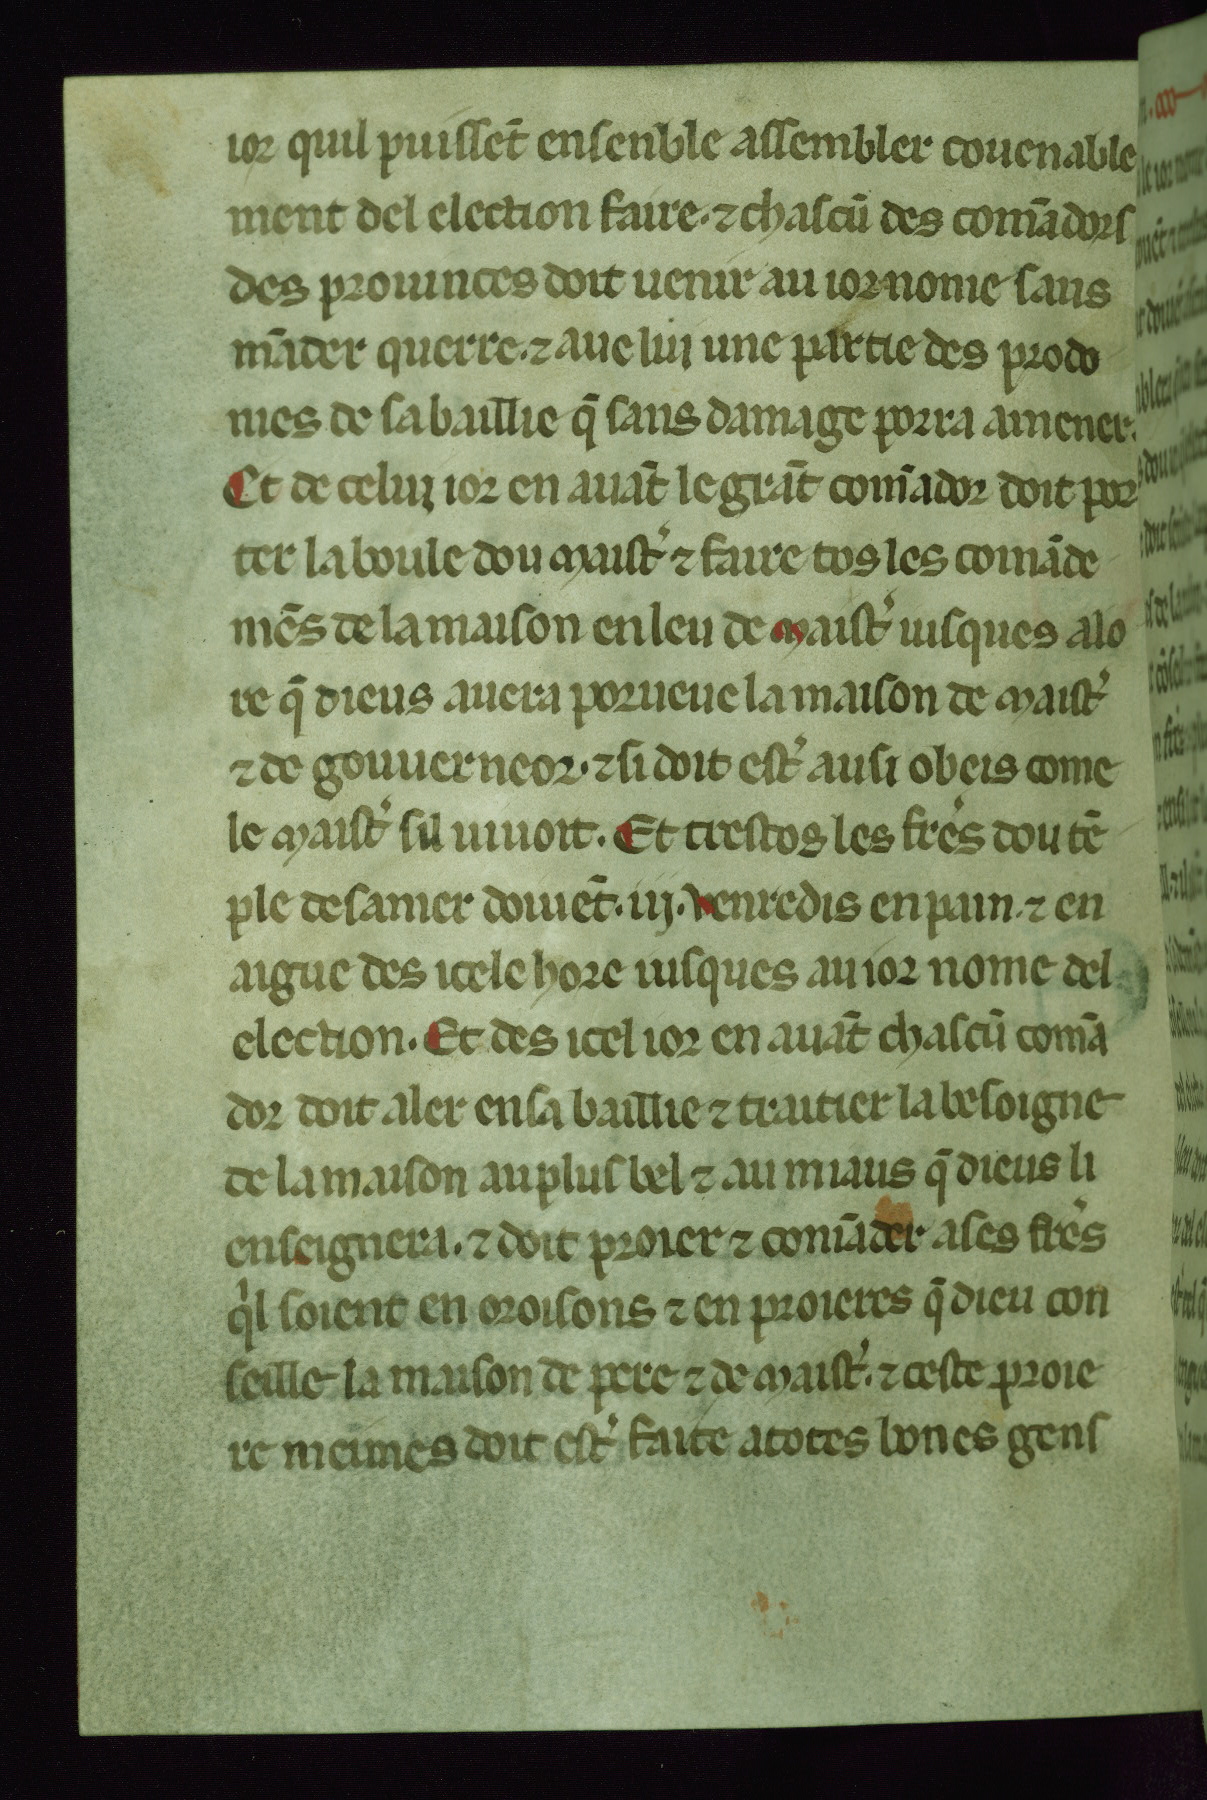 ior quil puissēt ensenble assembler couenable
ment del election faire. ⁊ chascū des comādors
des prouinces doit uenir au ior nome sans
māder querre. ⁊ aue lui une partie des prodo
mes de sa baillie q̄ sans damage porra amener.
Et de celui ior en auāt le grāt comādor doit por
ter la boule dou maist᾽ ⁊ faire tos les comāde
mēs de la maison en leu de maist᾽ iusques a lo
re q̄ dieus auera porueue la maison de maist᾽
⁊ de gouuerneor. ⁊ si doit est᾽ ausi obeis come
le maist᾽ sil uiuoit. Et trestos les fre᾽s dou tē
ple desamer doiuēt .iij. venredis en pain. ⁊ en
aigue des icele hore iusques au ior nome del
election. Et des icel ior en auāt chascū comā
dor doit aler en sa baillie ⁊ traitier la besoigne
de la maison au plus bel ⁊ au miaus q̄ dieus li
enseignera. ⁊ doit proier ⁊ comāder a ses fre᾽s
qⁱl soient en oroisons ⁊ en proieres q̄ dieu con
seille la maison de pere ⁊ de maist᾽. ⁊ ceste proie
re meimes doit est᾽ faite a totes bones gens